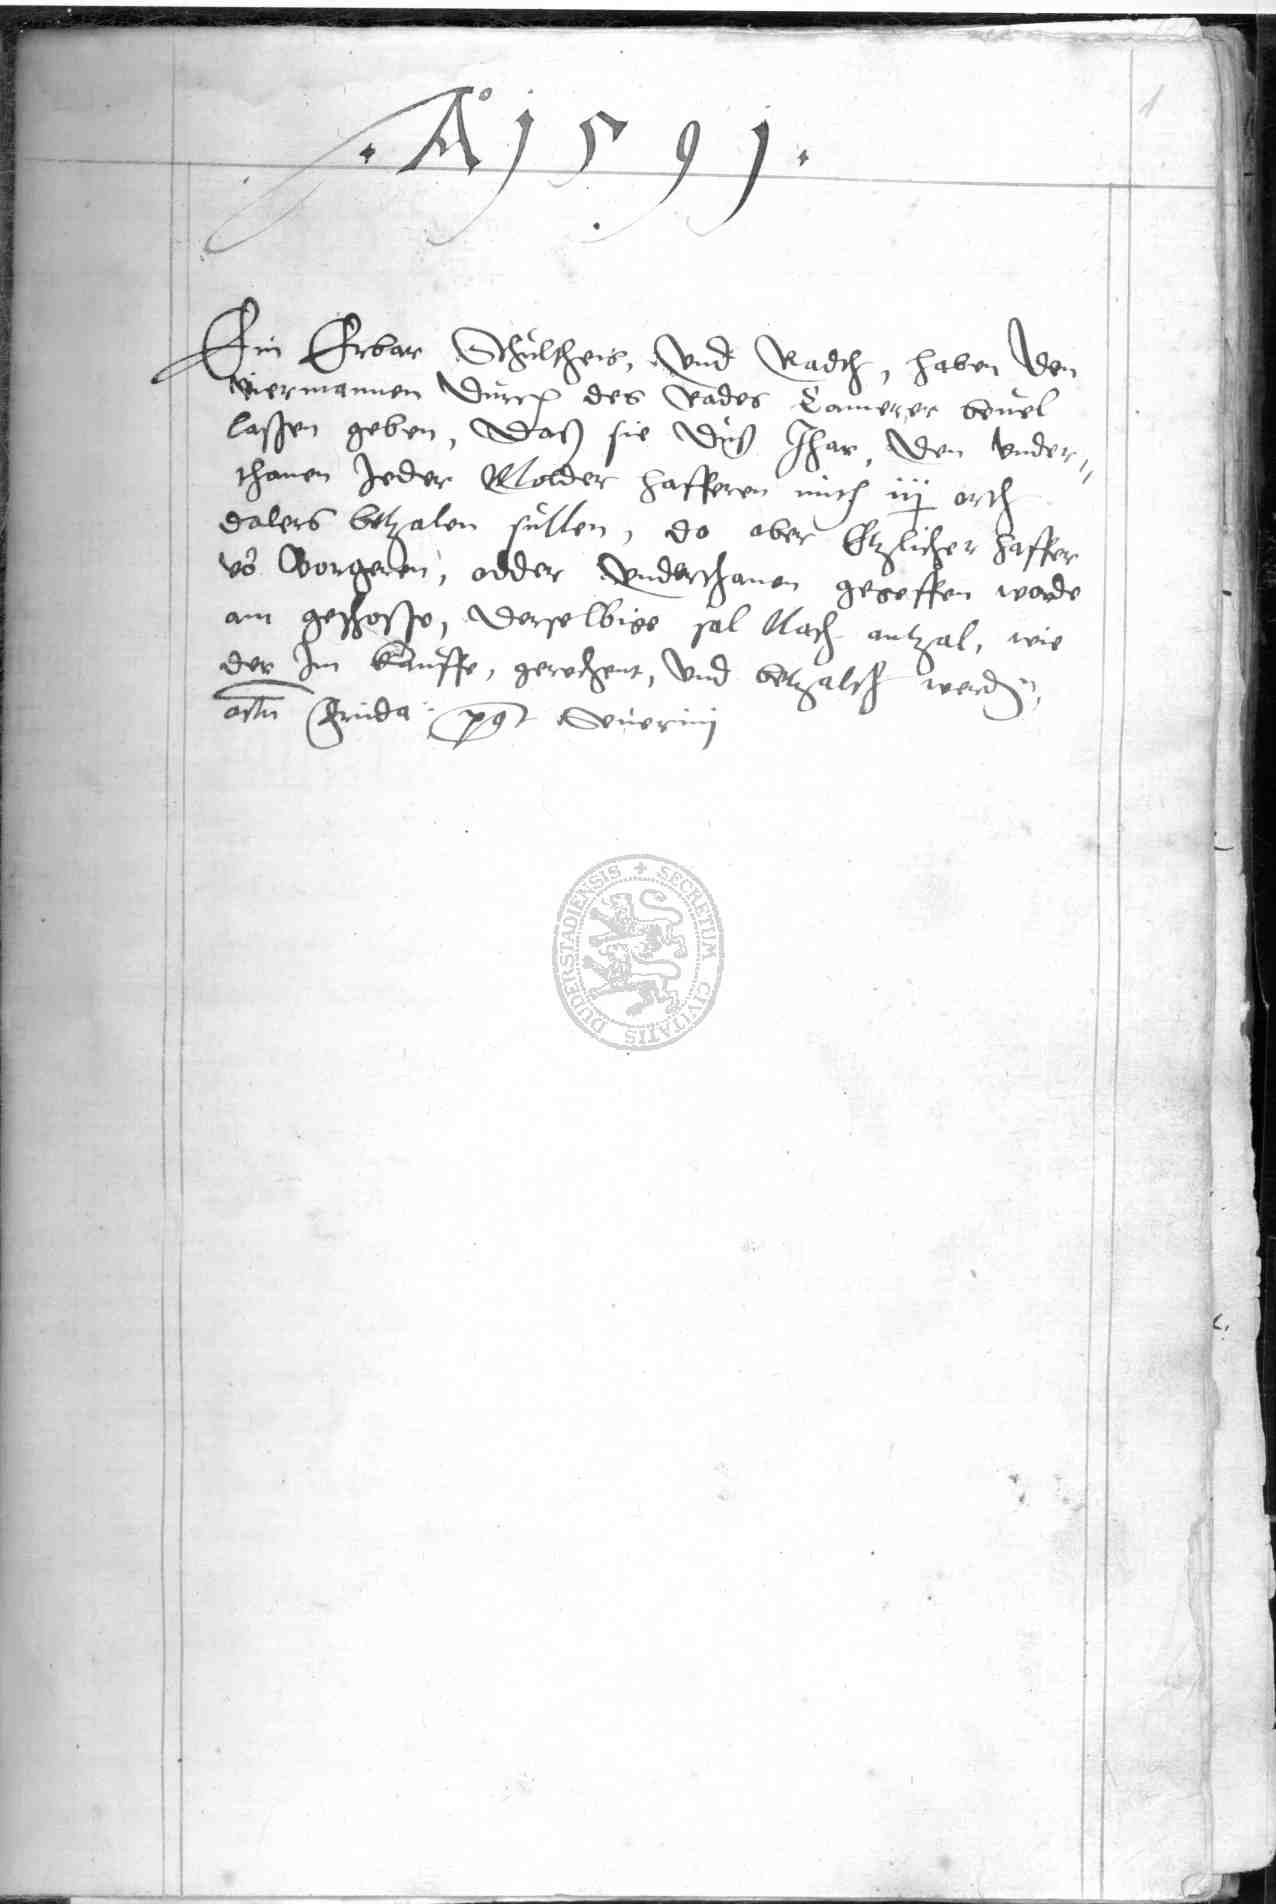 1
. Åͦ 1591 .
Ein Erbar Schultheis, Vnd Radth, haben den
viermannen durch des Rades Camerer beuel
lassen geben, Das sie Dys Jhar, den vnder,,
thanen Jeder Molder hafferen mith iij orth
dalers betzalen sullen, do aber Etzlicher haffer
vō Borgeren, odder Vnderthanen gegeffen worde
am geschosse, derselbige sal Nach antzal, wie
der Jm kauffe, gerechent, Vnd betzalth werdē,
actū Frida: post Seuerinj
SECRETUM CIVITATIS DUDERSTADIENSIS